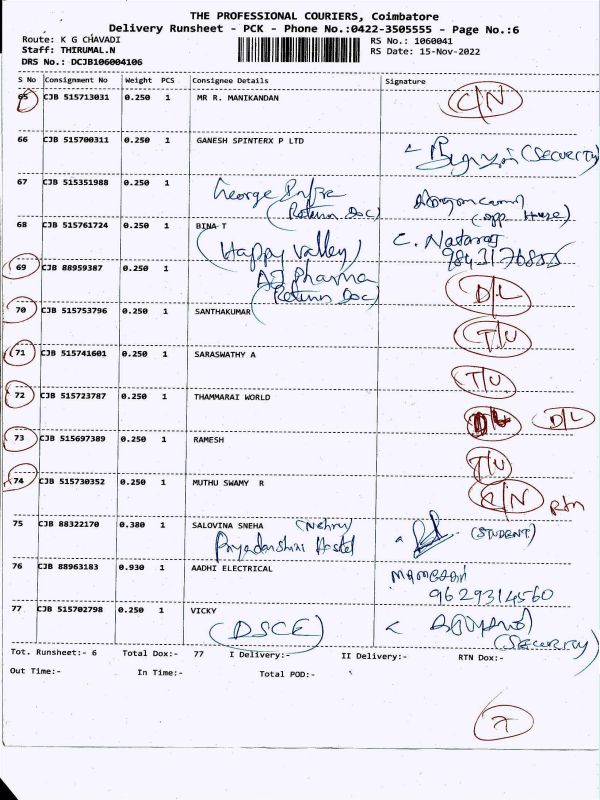 THE PROFESSIONAL COURIERS, Coimbatore
Delivery Runsheet - PCK - Phone No.:0422-3505555 - Page No.:6
Route: K G CHAVADI RS No.: 1060041
Staff: THIRUMAL.N RS Date: 15-Nov-2022
DRS No.: DCJB106004106
S No Consignment No Weight PCS Consignee Details Signature
65 CJB 515713031 0.250 1 MR R. MANIKANDAN C/N
66 CJB 515700311 0.250 1 GANESH SPINTERX P LTD
(SECURITY)
67 CJB 515351988 0.250 1 George
(Return Doc) (opp House)
68 CJB 515761724 0.250 1 BINA T C. Nataraj
(Happy Valley)
69 CJB 88959387 0.250 1 Pharma D/L
(Return Doc)
70 CJB 515753796 0.250 1 SANTHAKUMAR T/U
71 CJB 515741601 0.250 1 SARASWATHY A T/U
72 CJB 515723787 0.250 1 THAMMARAI WORLD D/L D/L
73 CJB 515697389 0.250 1 RAMESH T/U
74 CJB 515730352 0.250 1 MUTHU SWAMY R /N Rtn
75 CJB 88322170 0.380 1 SALOVINA SNEHA (Nehru) (STUDENT)
Priyadarshini Hostel
76 CJB 88963183 0.930 1 AADHI ELECTRICAL
9629314560
77 CJB 515702798 0.250 1 VICKY
(DSCE) (SECURITY)
Tot. Runsheet:- 6 Total Dox:- 77 I Delivery:- II Delivery:- RTN Dox:-
Out Time:- In Time:- Total POD:-
7